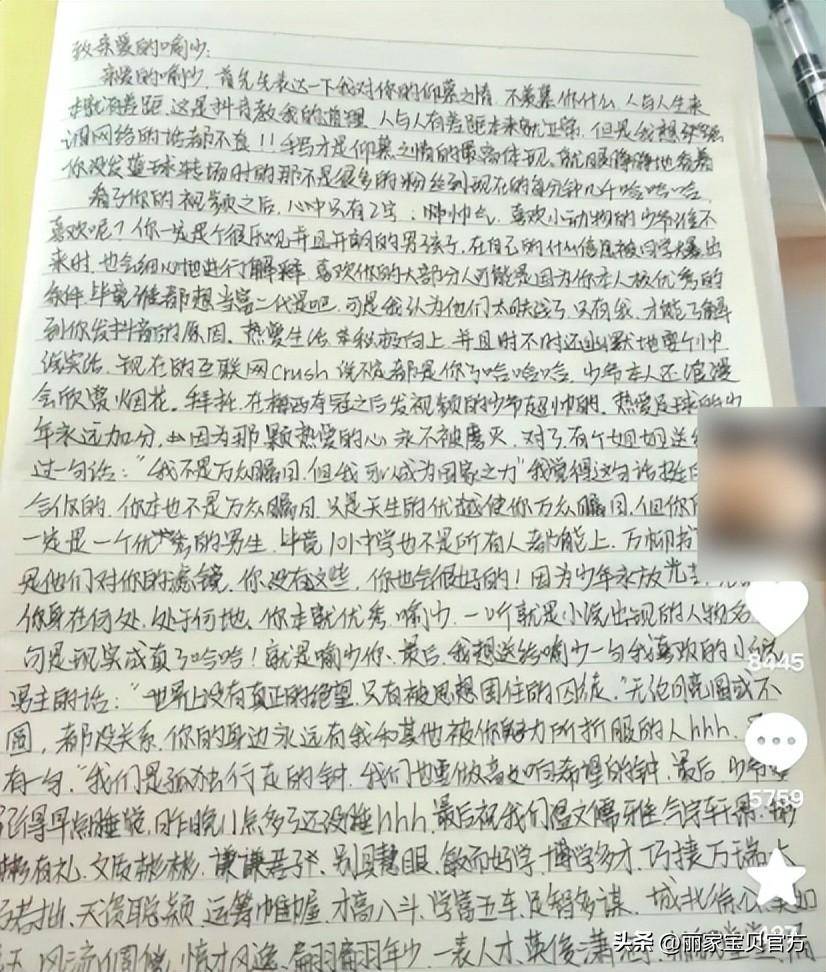 致亲爱的喻少:
亲爱的喻少,首先先表达一下我对你的仰慕之情,不羡慕你什么,人与人生来
就有差距,这是抖音教我的道理,人与人有差距本来就正常,但是我想
调网络的话都不查!!手写才是仰慕之情的最高体现,就很静静地看着
你没发篮球转场时的那不是很多的粉丝到现在的每分钟几千哈哈哈.
看了你的视频之后,心中只有2字:帅帅气,喜欢小动物的少爷谁不
喜欢呢?你一定是个很乐观并且开朗的男孩子,在自己的什么信息被同学爆出
来时,也会细心地进行解释,喜欢你的大部分人可能是因为你本人极优秀的
条件,毕竟谁都想当富二代是吧,可是我认为他们太肤浅了,只有我,才能了解
到你发抖音的原因,热爱生活,积极向上,并且时不时还幽默地耍个小帅
实话,现在的互联网crush说不定都是你了哈哈哈,少爷本人还浪漫
会欣赏烟花,拜托,在梅西夺冠之后发视频的少爷超帅的,热爱足球的少
年永远加分,因为那颗热爱的心永不被磨灭,对了有个姐姐送
过一句话:“我不是万众瞩目,但我可以成为国家之力”我觉得这句话挺
合你的,你本也不是万众瞩目,只是天生的优越使你万众瞩目,但你
一定是一个优秀的男生,毕竟101中学也不是所有人都能上,万柳书
是他们对你的滤镜,你没有这些,你也会很好的!因为少年永放光芒,
你身在何处,处于何地,你本就优秀,喻少,一听就是小说出现的人物名
句是现实成真了哈哈!就是喻少你,最后,我想送给喻少一句我喜欢的小说
男主的话:“世界上没有真正的绝望,只有被思想困住的囚徒,”无论月亮圆或不
圆,都没关系,你的身边永远有我和其他被你魅力所折服的人hhh,
有一句,“我们是孤独行走的钟,我们也要做高处响希望的钟,最后,少爷
记得早点睡觉,昨晚11点多了还没睡hhh,最后祝我们温文儒雅,气宇轩昂,彬
彬有礼,文质彬彬,谦谦君子,别具慧眼,敏而好学,博学多才,巧捷万端,大
巧若拙,天资聪颖,运筹帷幄,才高八斗,学富五车,足智多谋,城北徐公,美如
风流倜傥,惊才风逸,翩翩年少,一表人才,英俊潇
8445
5759
427
头条 @丽家宝贝官方